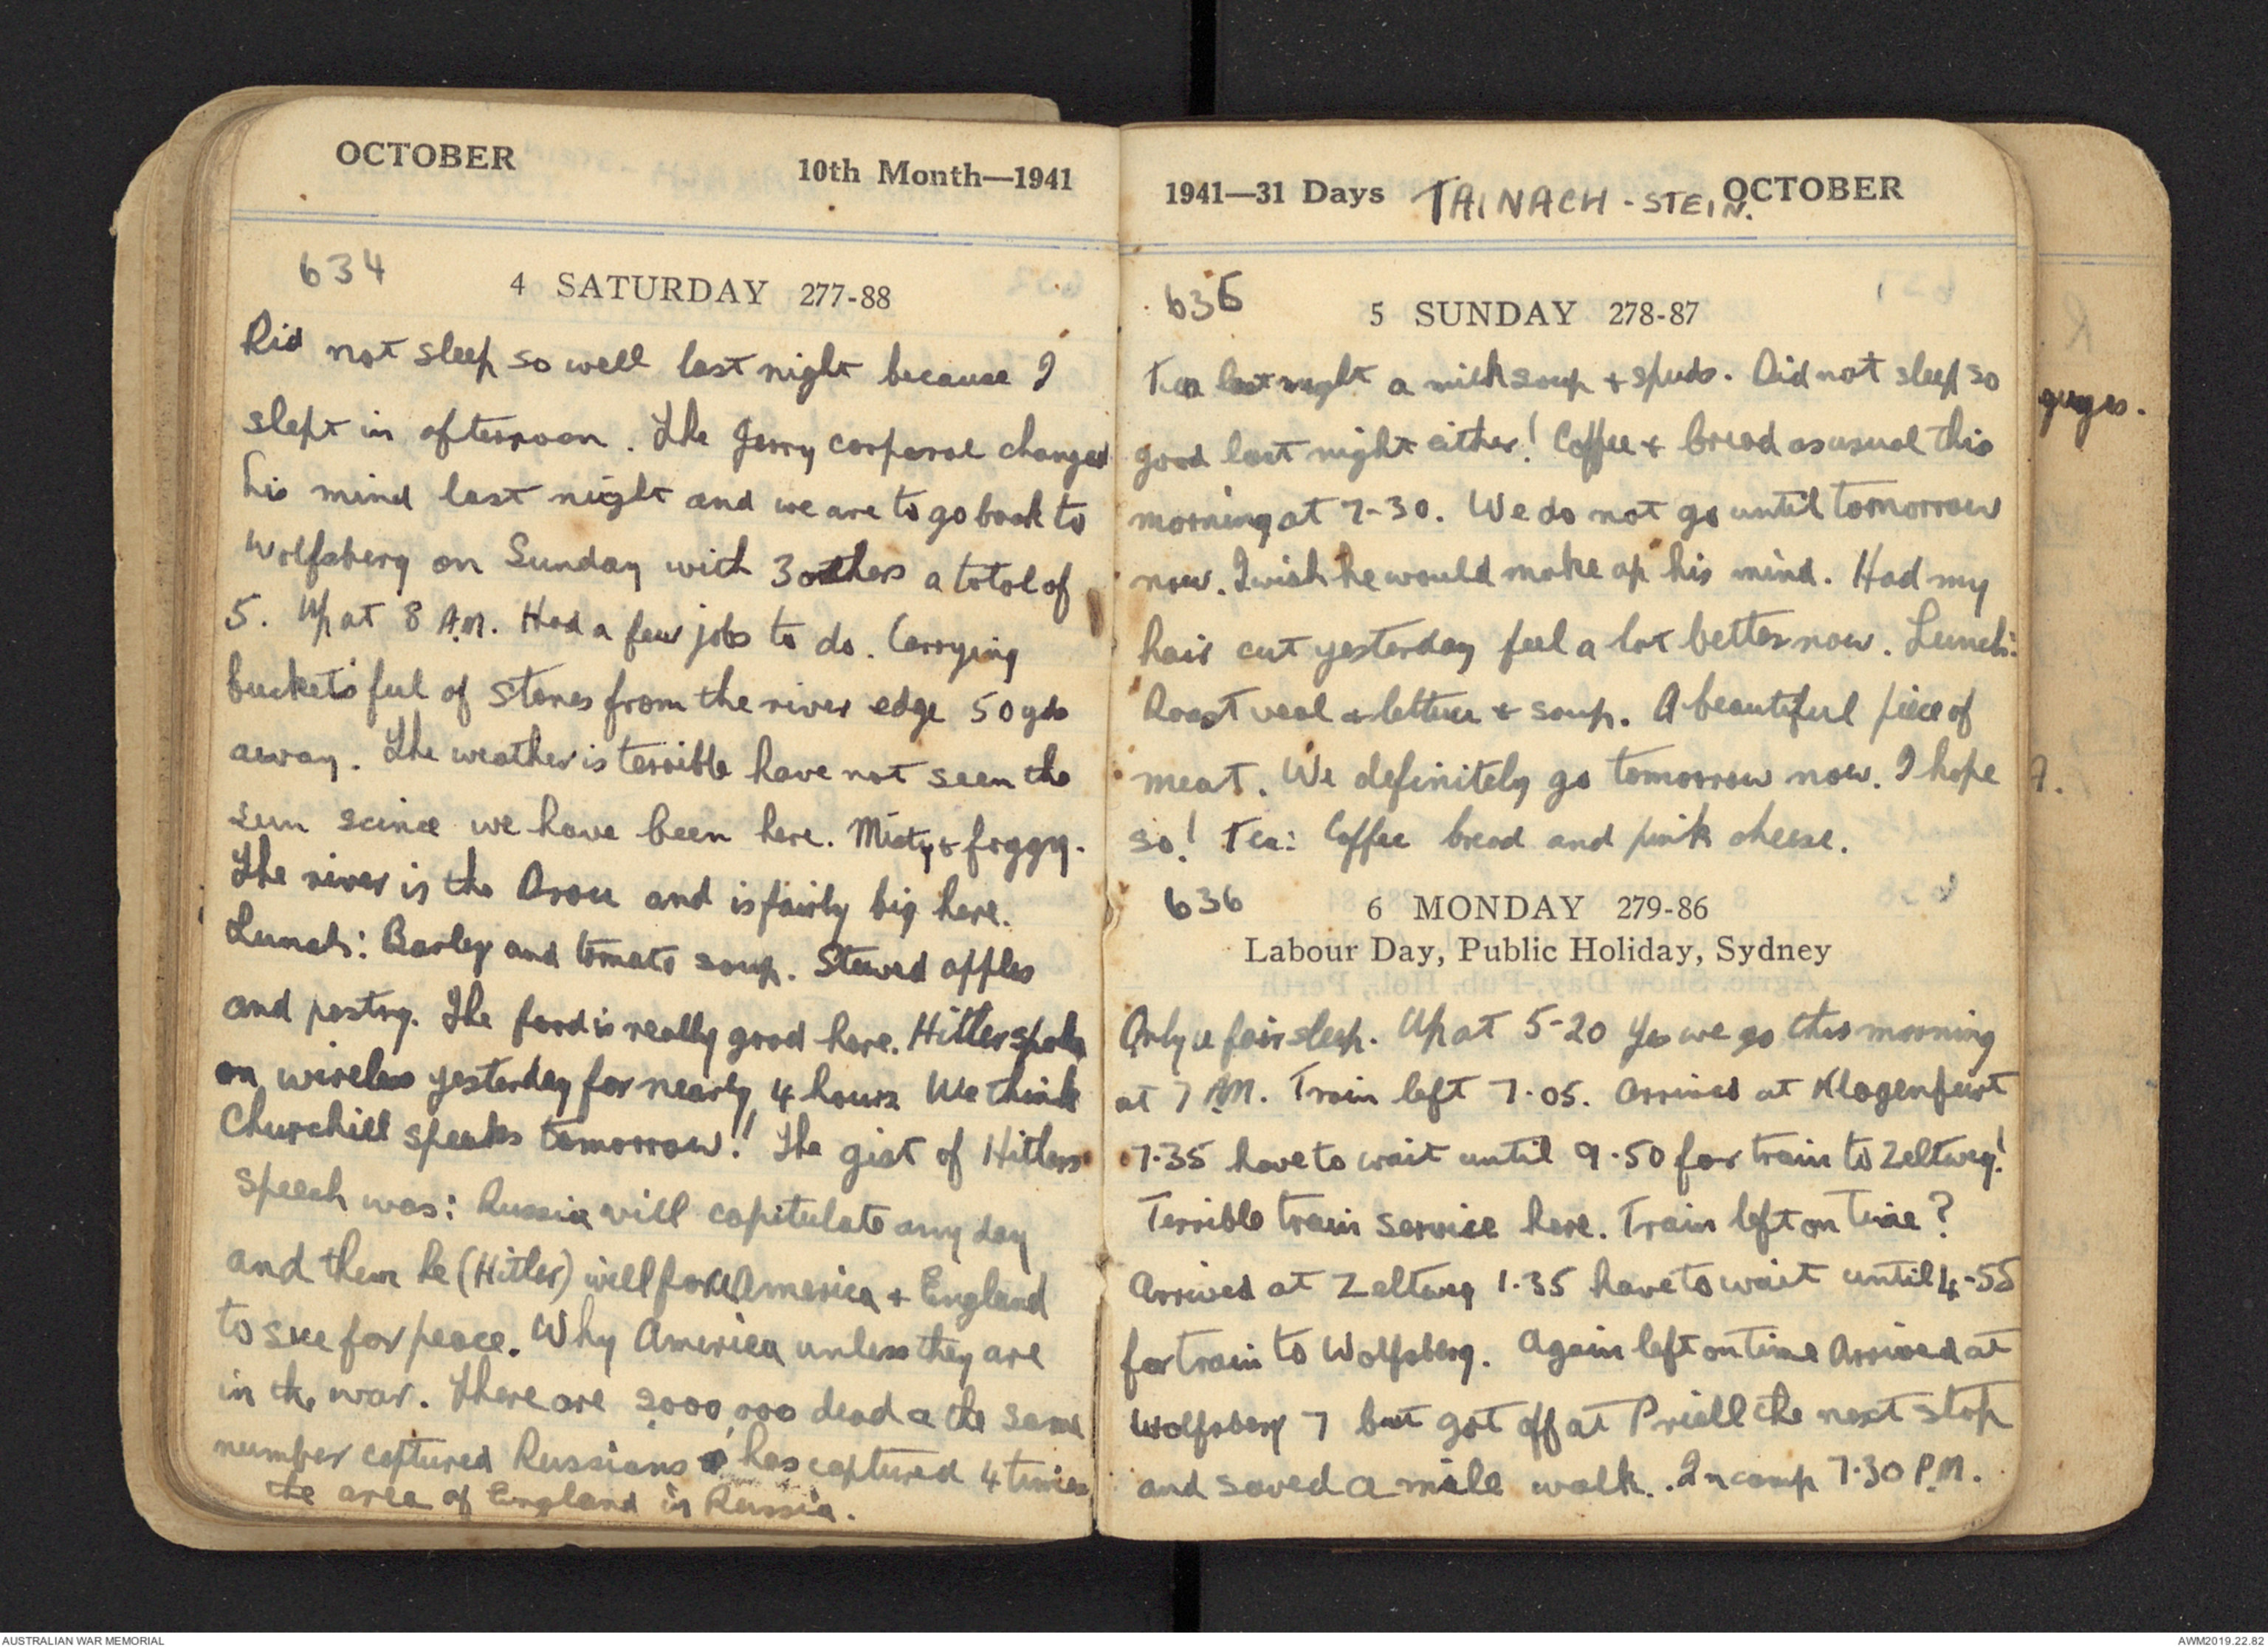 OCTOBER 10th Month—1941
634
4 SATURDAY 277-88
Did not sleep so well last night because I
slept in afternoon. The Jerry corporal changed
his mind last night and we are to go back to
Wolfsberg on Sunday with 3 others a total of
5. Up at 8 A.M. Had a few jobs to do. Carrying
buckets ful of stones from the river edge 50 yds
away. The weather is terrible have not seen the
sun scince we have been here. Misty & foggy.
The river is the Drou and is fairly big here.
Lunch: Barley and tomato soup. Stewed apples
and pastry. The food is really good here. Hitler spoke
on wireless yesterday for nearly 4 hours We think
Churchill speaks tomorrow!! The gist of Hitlers
speech was: Russia will capitulate any day
and then he (Hitler) will force America + England
to sue for peace. Why America unless they are
in the war. There are 2000,000 dead & the same
number captured Russians & has captured 4 times
the area of England in Russia.
1941—31 Days TAINACH-STEIN. OCTOBER
635
5 SUNDAY 278-87
Tea last night a milk soup + spuds. Did not sleep so
good last night either! Coffee + bread as usual this
morning at 7-30. We do not go until tomorrow
now. I wish he would make up his mind. Had my
hair cut yesterday feel a lot better now. Lunch:
Roast veal & lettuce + soup. A beautiful piece of
meat. We definitely go tomorrow now. I hope
so! Tea: Coffee bread and pink cheese.
636
6 MONDAY 279-86
Labour Day, Public Holiday, Sydney
Only a fair sleep. Up at 5-20 Yes we go this morning
at 7 AM. Train left 7.05. Arrived at Klagenfurt
7.35 have to wait until 9.50 for train to Zeltweg!
Terrible train service here. Train left on time?
Arrived at Zeltweg 1.35 have to wait until 4-55
for train to Wolfsberg. Again left on time Arrived at
Wolfsberg 7 but got off at Priell the next stop
and saved a mile walk. In camp 7.30 P.M.
guys.
AUSTRALIAN WAR MEMORIAL
AWM2019.22.82